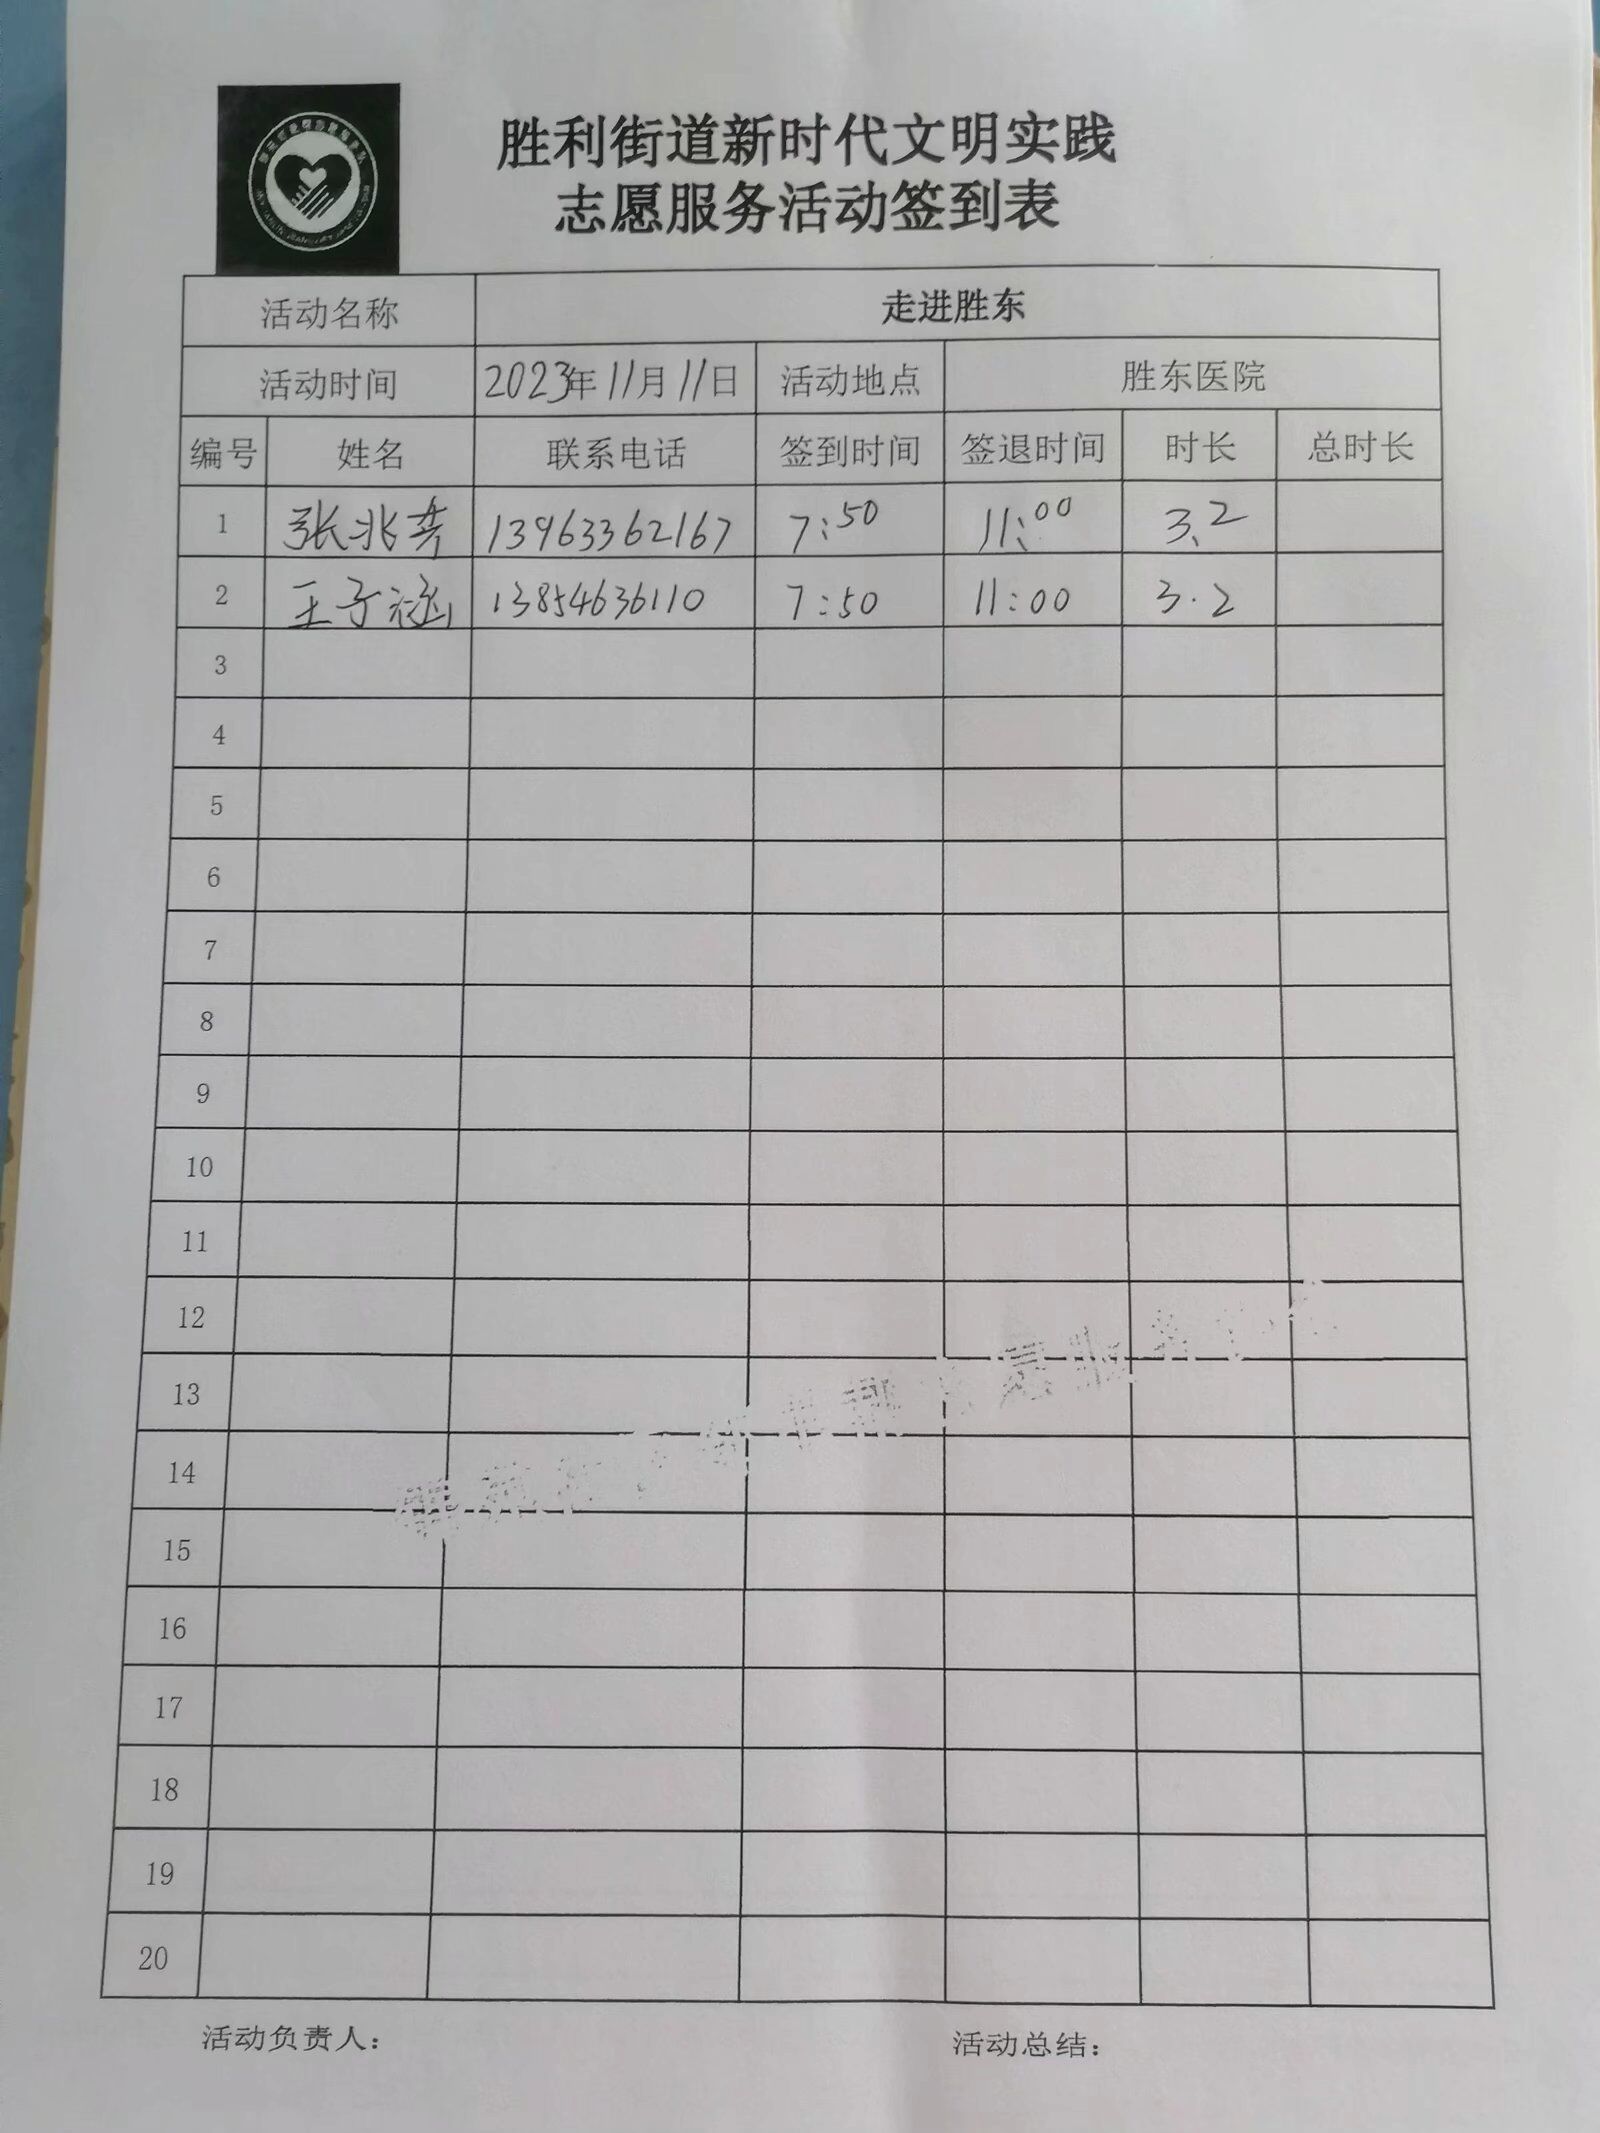 胜利街道新时代文明实践
志愿服务活动签到表
活动名称 走进胜东
活动时间 2023年11月11日 活动地点 胜东医院
编号 姓名 联系电话 签到时间 签退时间 时长 总时长
1 张兆奔 13963362167 7:50 11:00 3.2
2 王子涵 13854636110 7:50 11:00 3.2
3
4
5
6
7
8
9
10
11
12
13
14
15
16
17
18
19
20
活动负责人： 活动总结：